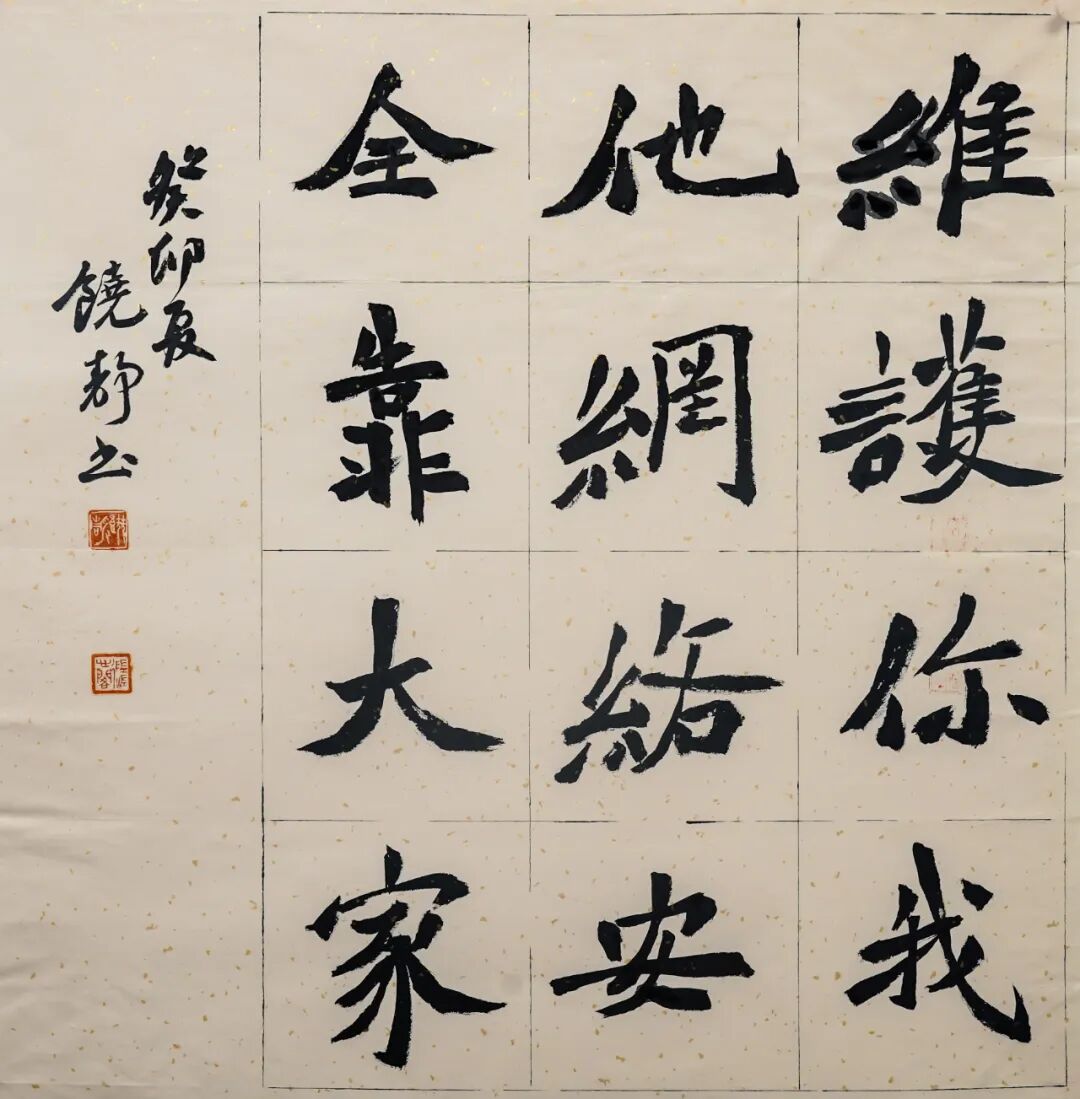 維護你我
他網絡安
全靠大家
癸卯夏
饒靜書